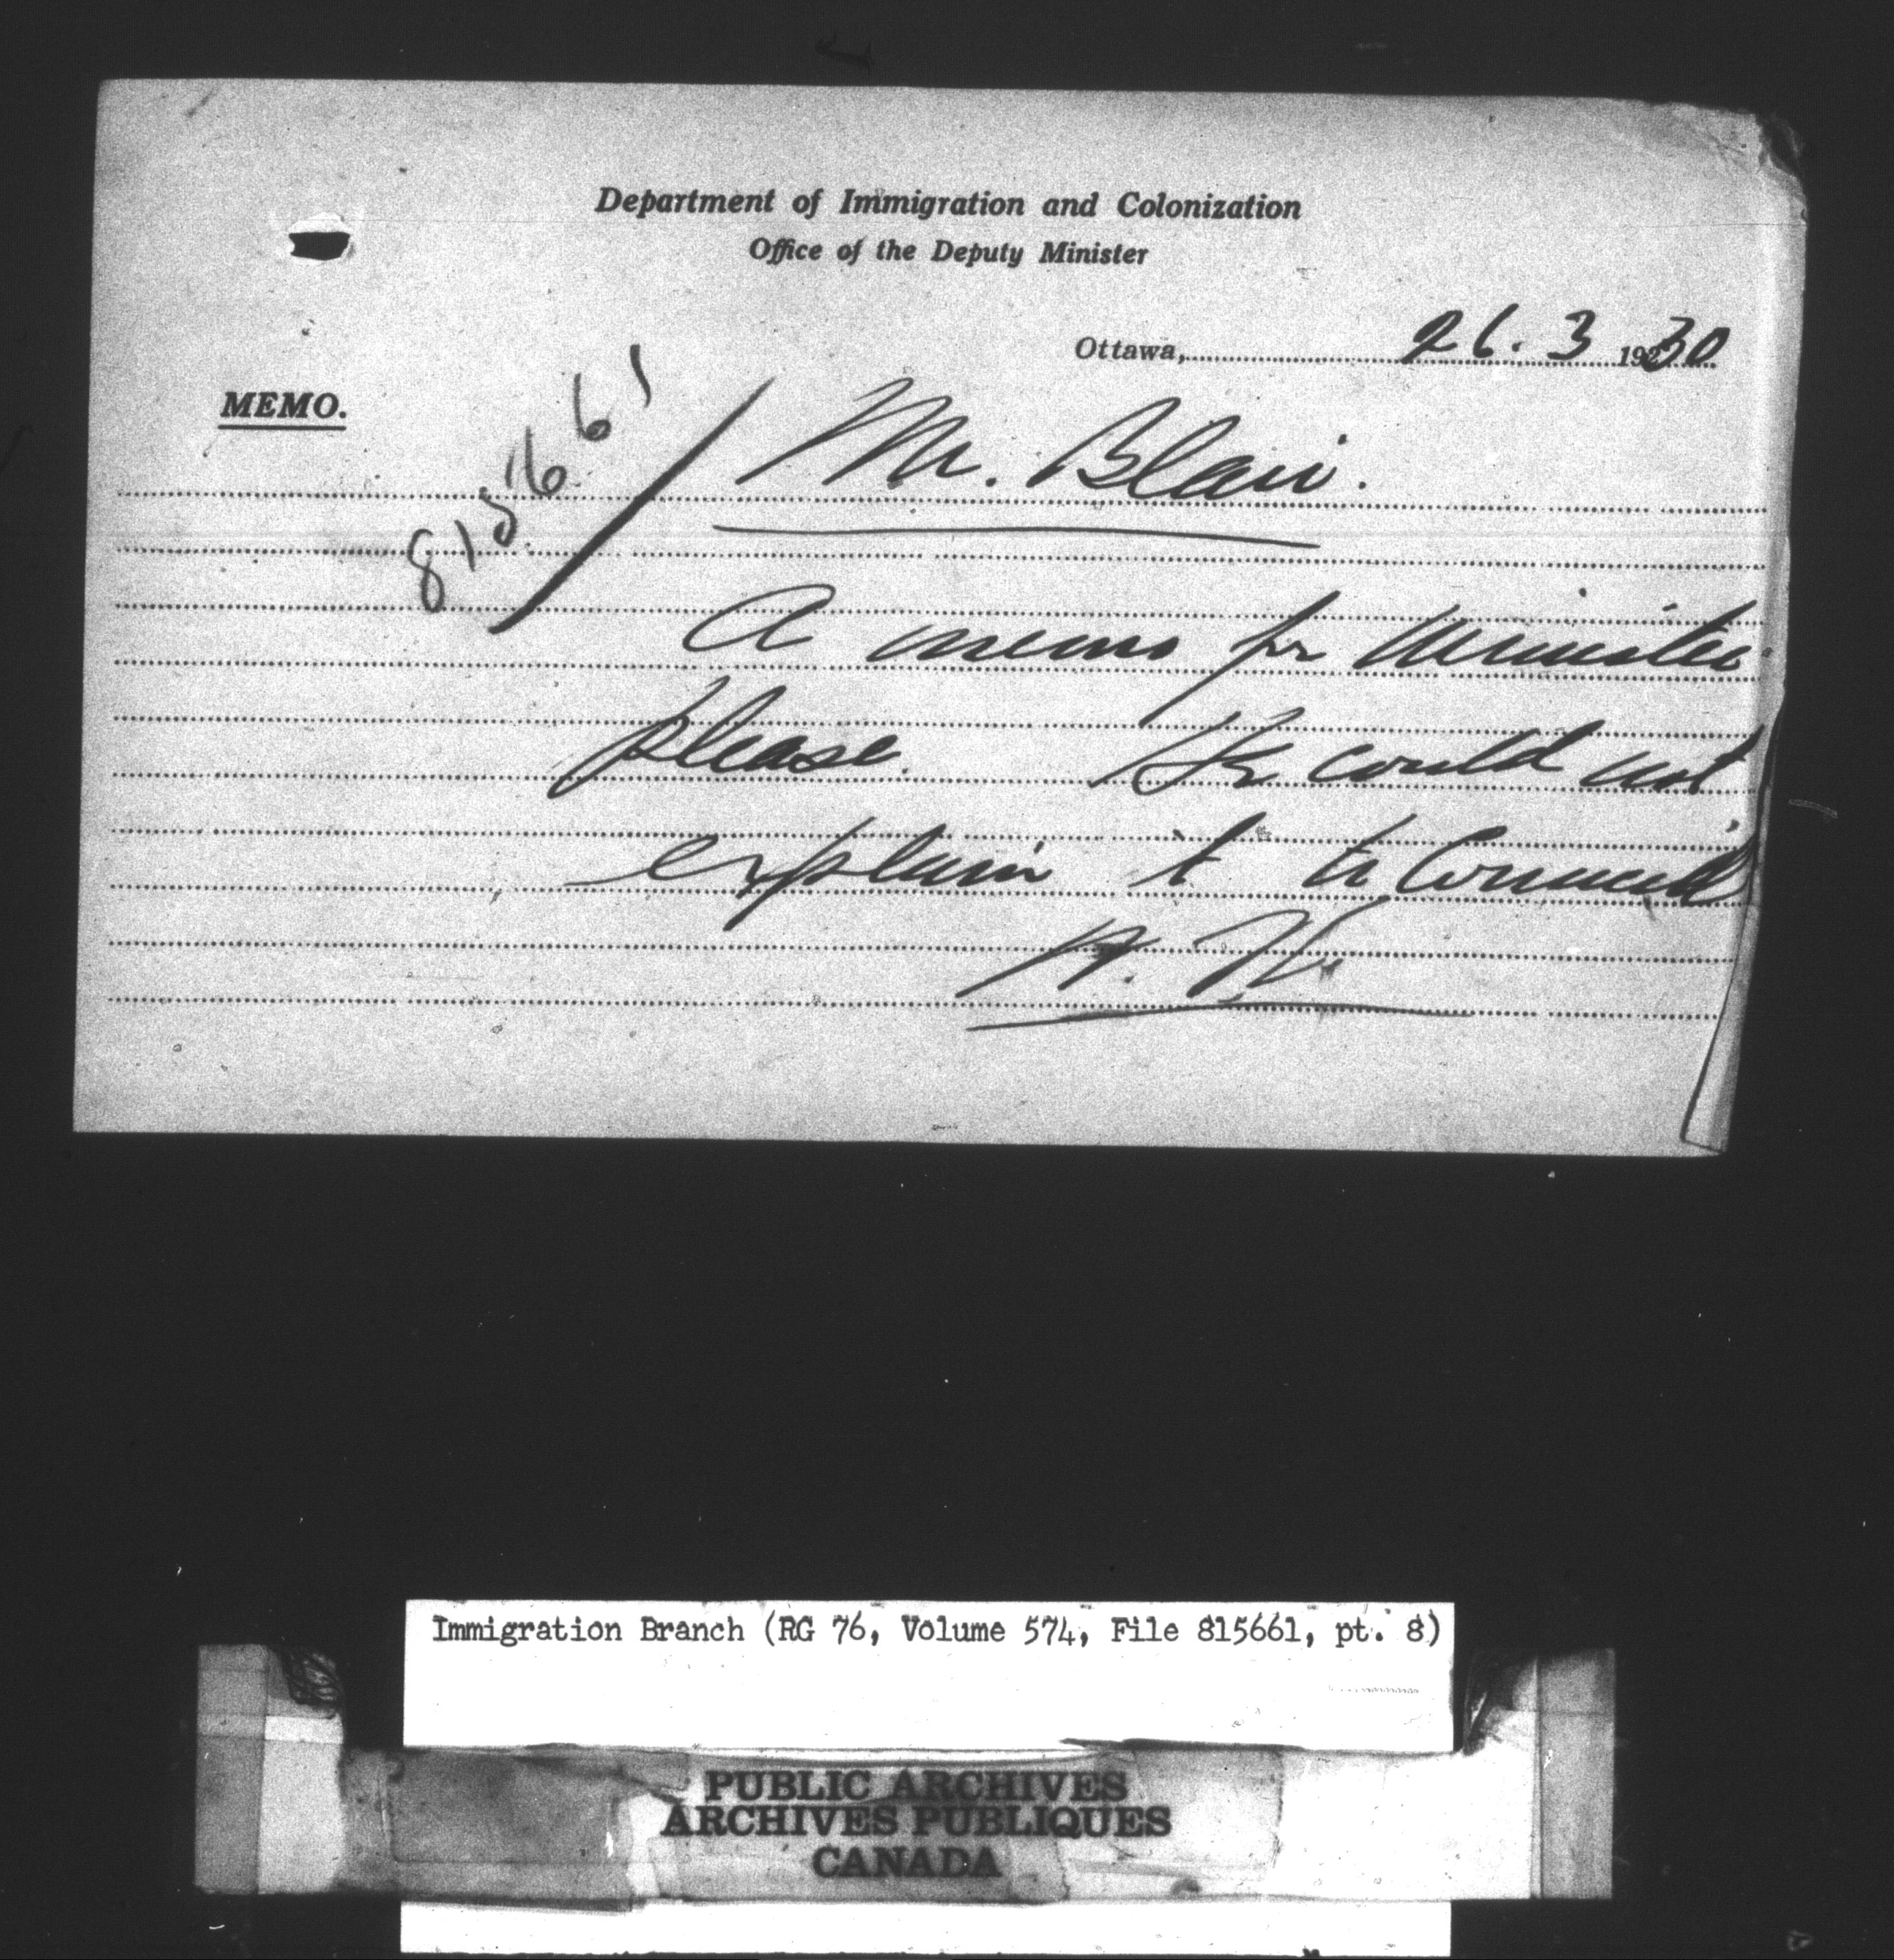 Department of Immigration and Colonization
Office of the Deputy Minister
Ottawa, 26.3 1930
MEMO.
815661
Mr. Blair.
A memo for Minister
please. He could not
explain it to Council
Immigration Branch (RG 76, Volume 574, File 815661, pt. 8)
PUBLIC ARCHIVES
ARCHIVES PUBLIQUES
CANADA